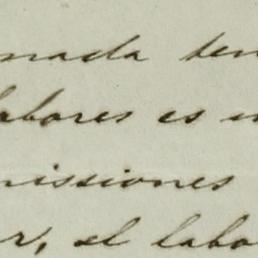 nada ten
labores es
misiones
r, el labo